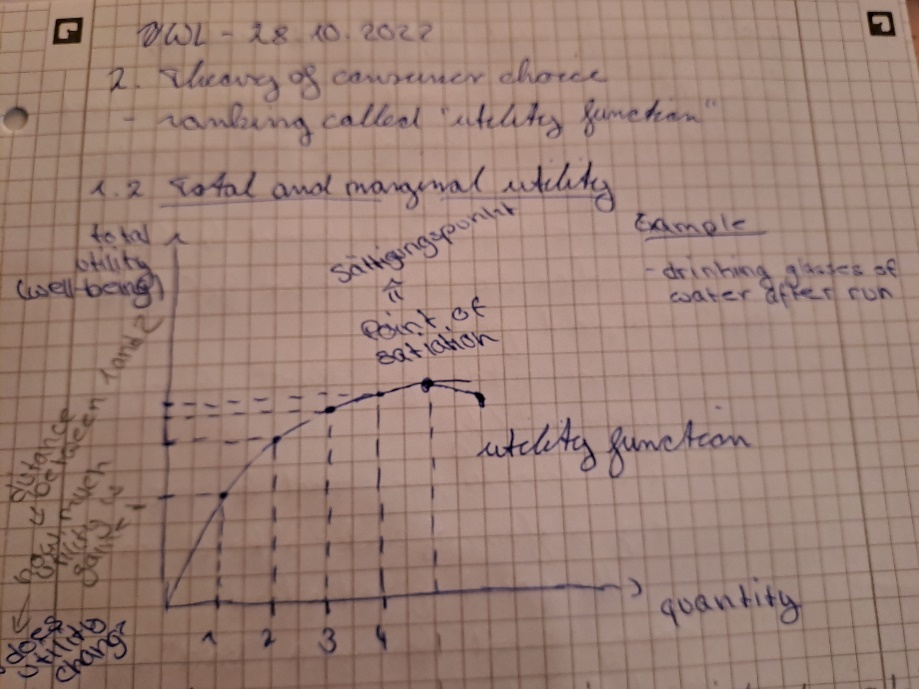 VWL - 28.10.2022
2. Theory of consumer choice
- ranking called "utility function"
1.2 Total and marginal utility
total
utility
(well-being)
Sättigungspunkt
Point of
satiation
Example
- drinking glasses of
water after run
utility function
quantity
1 2 3 4
distance
between 1 and 2
how much
utility is
does
utility
change